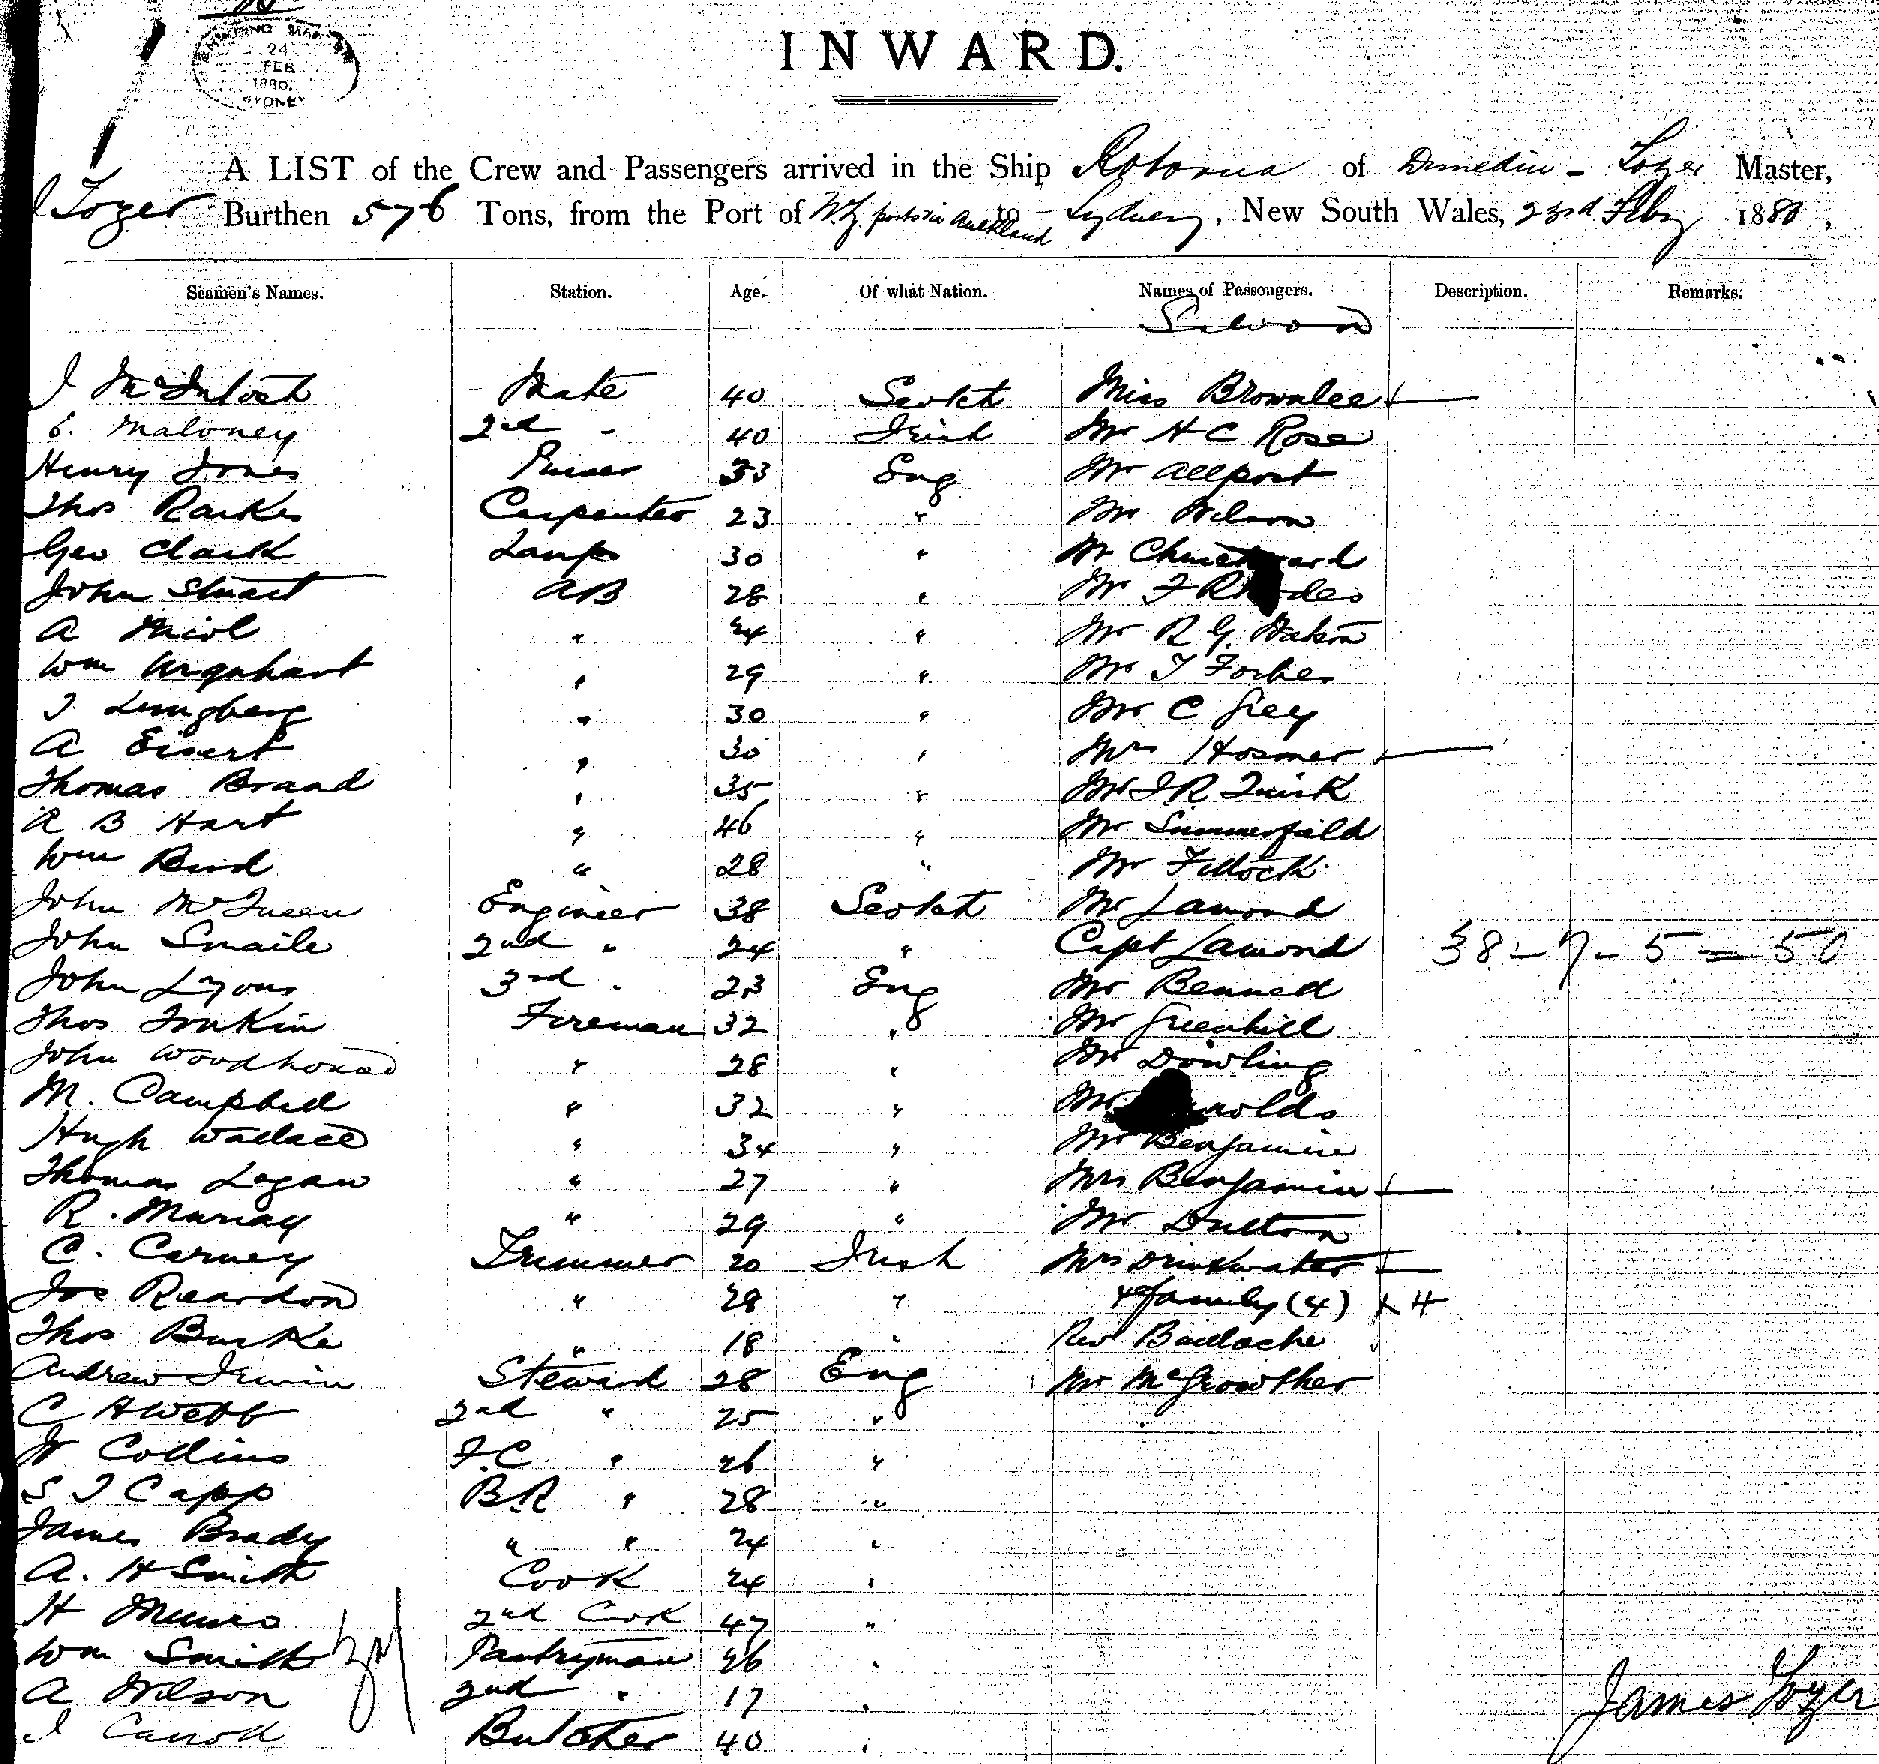 24
FEB
1880
SYDNEY
INWARD.
A LIST of the Crew and Passengers arrived in the Ship Rotorua of Dunedin - Tozer Master,
J Tozer Burthen 576 Tons, from the Port of N.Z. ports via Auckland to Sydney, New South Wales, 23rd Feby 1880.
Seamen's Names. Station. Age. Of what Nation. Names of Passengers. Description. Remarks.
Saloon
J McIntosh Mate 40 Scotch Miss Brownlee
E. Maloney 2nd - 40 Irish Mr H C Rose
Henry Jones Purser 33 Eng Mr Allport
Thos Raikes Carpenter 23 " Mr Wilson
Geo Clark Lamps 30 " Mr
John Stuart AB 28 " Mr F Rhodes
A Nicol " 24 " Mr R G
Wm Urquhart " 29 " Mr T Forbes
J Lungberg " 30 " Mr C Grey
A Eisert " 30 " Mrs Hosmer
Thomas Brand " 35 " Mr J R Quirk
R B Hart " 46 " Mr Summerfield
Wm Bird " 28 " Mr
John McQueen Engineer 38 Scotch Mr Lamond
John Smaile 2nd " 24 " Capt Lamond 38 - 7 - 5 = 50
John Lyons 3rd " 23 Eng Mr Bennett
Thos Tonkin Fireman 32 " Mr Greenhill
John Woodhouse " 28 " Mr Dowling
M. Campbell " 32 " Mr
Hugh Wallace " 34 " Mr Benjamin
Thomas Logan " 27 " Mrs Benjamin
R. Murray " 29 " Mr Dutton
C. Carney Trimmer 20 Irish Mrs Drinkwater
Jos Reardon " 28 " & family (4) x 4
Thos Burke " 18 " Rev
Andrew Irwin Steward 28 Eng Mr McGrowther
C H Webb 2nd " 25 "
W Collins F.C " 26 "
S J Capp B.R " 28 "
James Brady " " 24 "
A. H Smith Cook 24 "
H Munro 2nd Cook 47 "
Wm Smith Pantryman 26 "
A Wilson 2nd " 17 "
J Carroll Butcher 40 "
James Tozer